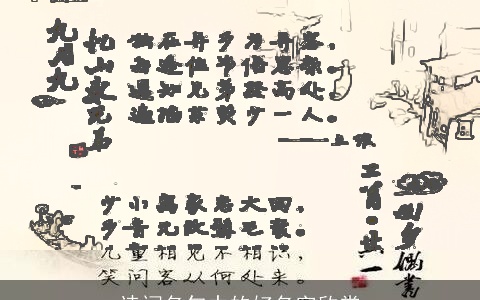 九月九
忆山东兄弟
独在异乡为异客，
每逢佳节倍思亲。
遥知兄弟登高处，
遍插茱萸少一人。
——王维
回乡偶书
二首·其一
少小离家老大回，
乡音无改鬓毛衰。
儿童相见不相识，
笑问客从何处来。